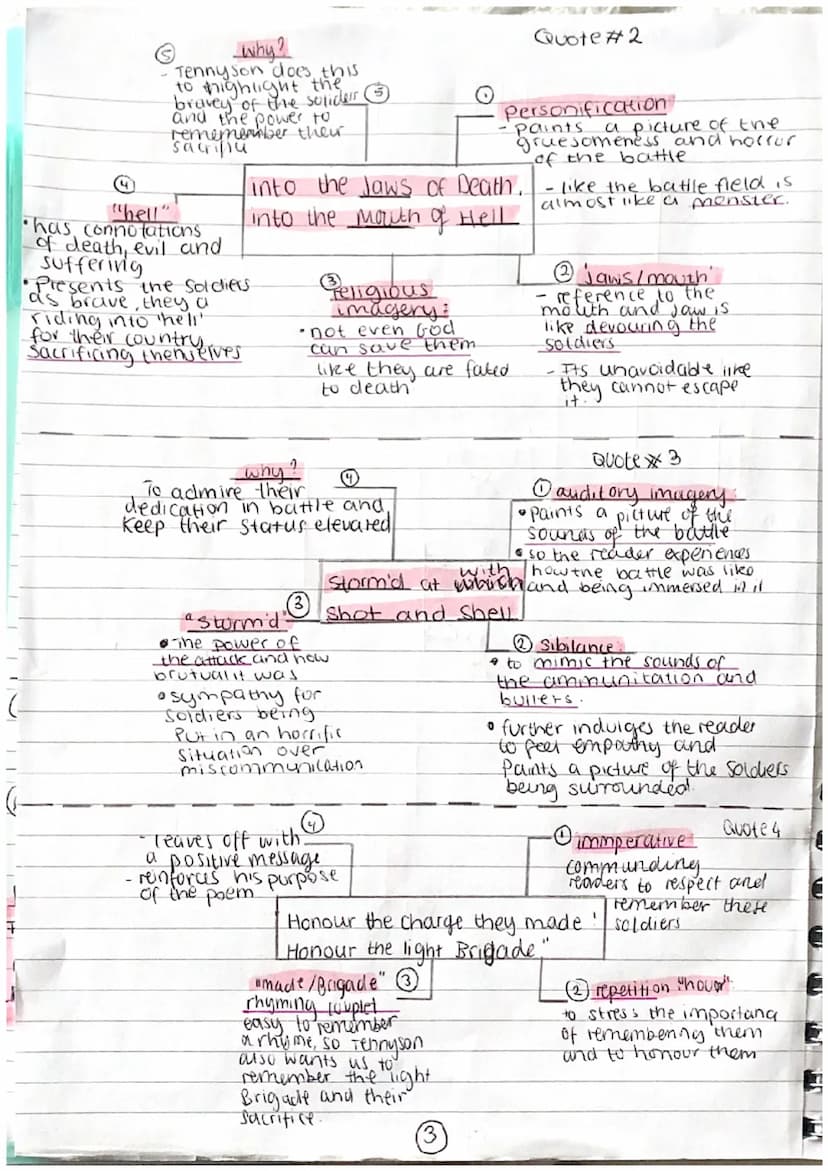 Quote #2
⑤ why?
- Tennyson does this
to highlight the
bravey of the soliders ⑤
and the power to
rememember their
sacrifice
①
personification
- paints a picture of the
gruesomeness and horror
of the battle
- like the battle field is
almost like a monster.
into the Jaws of Death,
into the Mouth of Hell
④
"hell"
• has connotations
of death, evil and
suffering
• Presents the soldiers
as brave, they a
riding into 'hell'
for their country
sacrificing themselves
③
religious
imagery:
• not even God
can save them
like they are fated
to death
② 'jaws/mouth'
- reference to the
mouth and jaw is
like devouring the
soldiers
- Its unavoidable like
they cannot escape
it.
Quote #3
why? ④
To admire their
dedication in battle and
keep their status elevated
① auditory imagery:
• Paints a picture of the
sounds of the battle
• so the reader experiences
how the battle was like
and being immersed in it
with
Storm'd at
Shot and Shell
③
"Storm'd"
• The power of
the attack and how
brutual it was
• sympathy for
soldiers being
put in an horrific
situation over
miscommunication
② Sibilance:
• to mimic the sounds of
the ammunitation and
bullets.
• further indulges the reader
to feel empathy and
Paints a picture of the soldiers
being surrounded.
Quote 4
④
- leaves off with
a positive message
- reinforces his purpose
of the poem
① immperative
commanding
readers to respect and
remember these
soldiers
Honour the charge they made!
Honour the light Brigade"
"made/Brigade" ③
rhyming couplet
easy to remember
a rhyme, so Tennyson
also wants us to
remember the light
Brigade and their
sacrifice.
② repetition "honor"
to stress the importanc
of remembering them
and to honour them
③